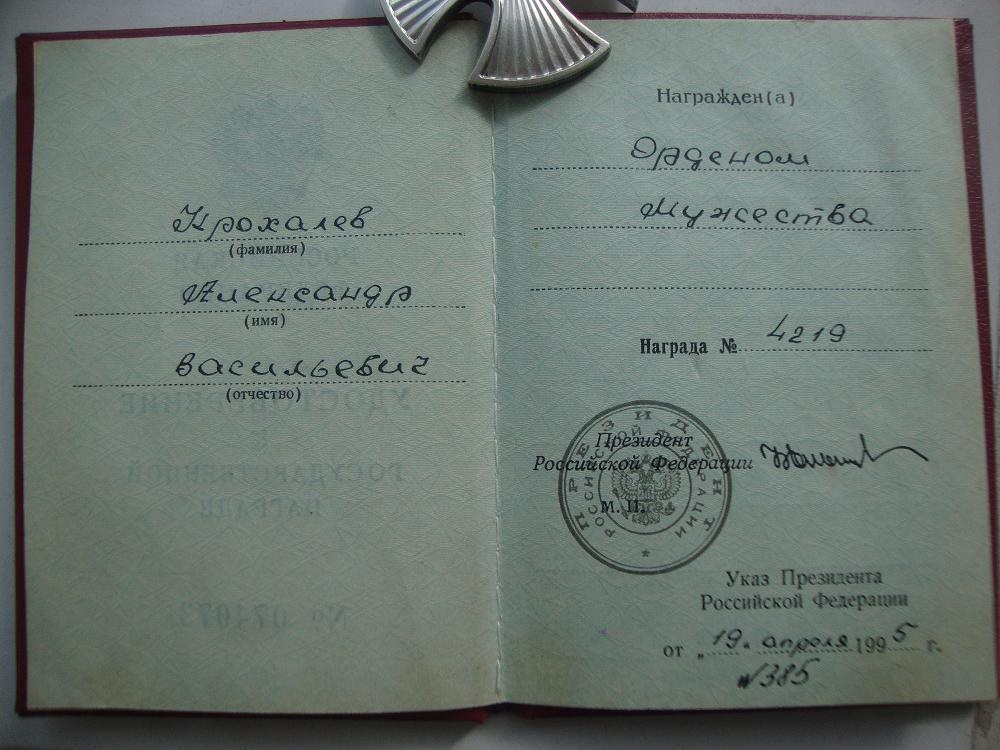 Крохалев
(фамилия)
Александр
(имя)
Васильевич
(отчество)
Награжден(а)
Орденом
Мужества
Награда № 4219
Президент
Российской Федерации
М. П.
ПРЕЗИДЕНТ
РОССИЙСКОЙ ФЕДЕРАЦИИ
Указ Президента
Российской Федерации
от „19" апреля 1995 г.
№385
УДОСТОВЕРЕНИЕ
К
ГОСУДАРСТВЕННОЙ
НАГРАДЕ